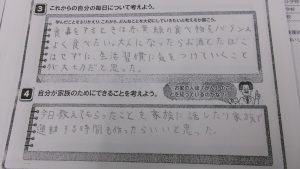 3 これからの自分の毎日について考えよう。
学んだことをふりかえり、これから、どんなことを大切にしていきたいか考えを書こう。
食事をするときは赤、黄、緑の食べ物をバランス
よく食べたい。大人になったらお酒とたばこ
はせずに、生活習慣に気をつけていくこと
が大切だと思った。
4 自分が家族のためにできることを考えよう。
お家の人は「がん」のこ
とを知っているのかな?
今日教えてもらったことを家族に話したり家族で
運動する時間も作ったらいいと思った。